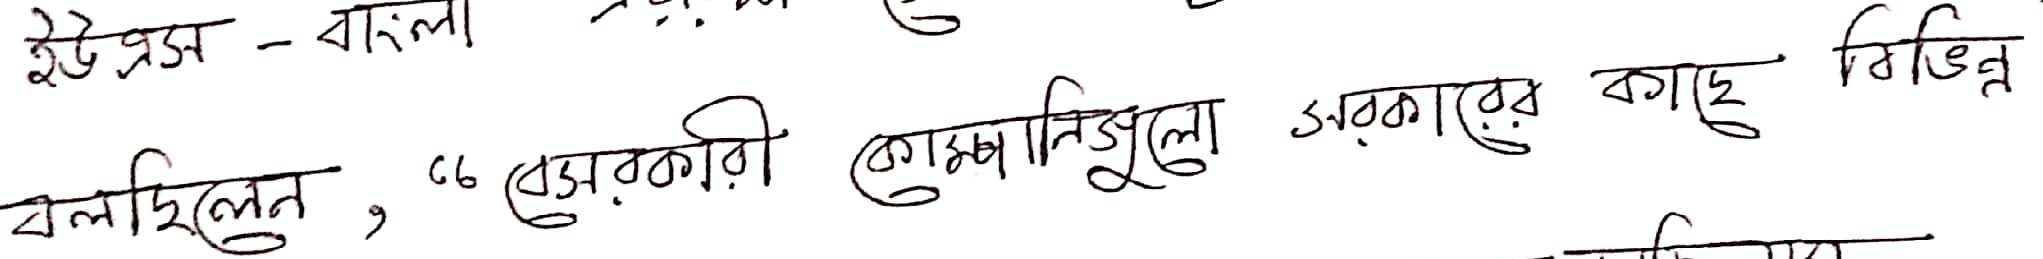 ইউএস - বাংলা
বলছিলেন, “বেসরকারী কোম্পানিগুলো সরকারের কাছে বিভিন্ন